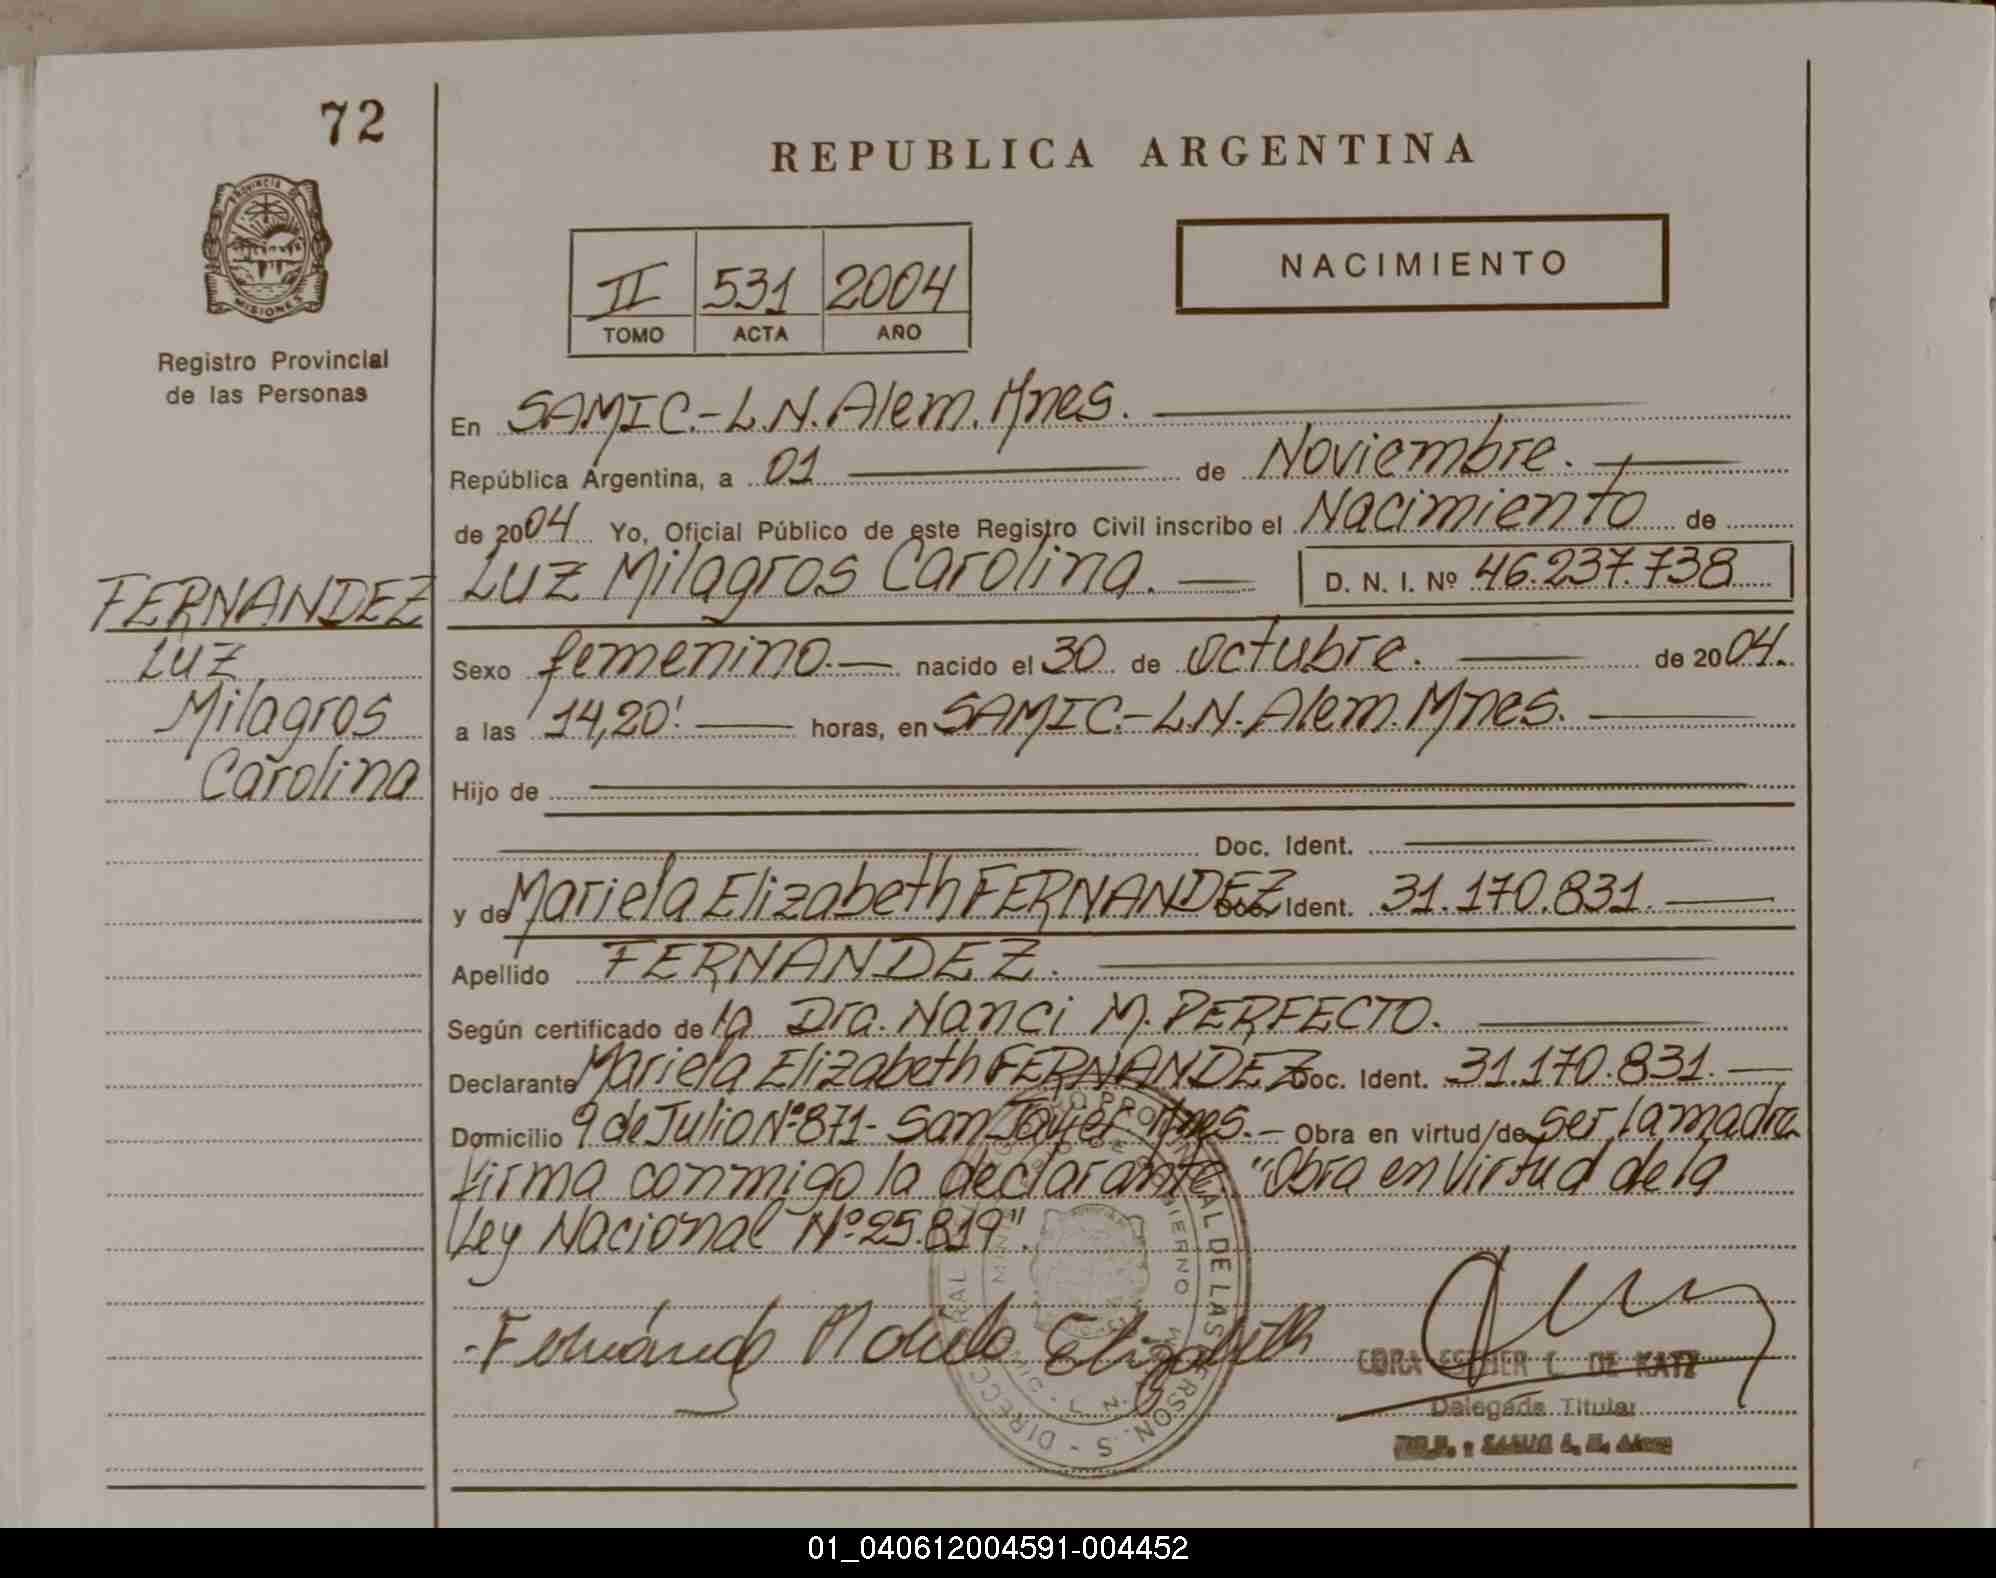 72
PROVINCIA DE
MISIONES
Registro Provincial
de las Personas
FERNANDEZ
Luz
Milagros
Carolina
REPUBLICA ARGENTINA
II 531 2004
TOMO ACTA AÑO
NACIMIENTO
En SAMIC.-L.N.Alem.Mnes.
República Argentina, a 01 de Noviembre.
de 2004 Yo, Oficial Público de este Registro Civil inscribo el Nacimiento de
Luz Milagros Carolina. D. N. I. Nº 46.237.738
Sexo femenino. nacido el 30 de octubre. de 2004.
a las 14,20' horas, en SAMIC.-L.N.Alem.Mnes.
Hijo de
Doc. Ident.
y de Mariela Elizabeth FERNANDEZ Doc. Ident. 31.170.831.
Apellido FERNANDEZ.
Según certificado de la Dra. Nanci M. PERFECTO.
Declarante Mariela Elizabeth FERNANDEZ Doc. Ident. 31.170.831.
Domicilio 9 de Julio Nº871- San Javier Mnes.- Obra en virtud/de ser la madre
firma conmigo la declarante "Obra en Virtud de la
Ley Nacional Nº25.819".
Fernández Mariela Elizabeth
CORA ESTHER C. DE KATZ
Delegada Titular
01_040612004591-004452